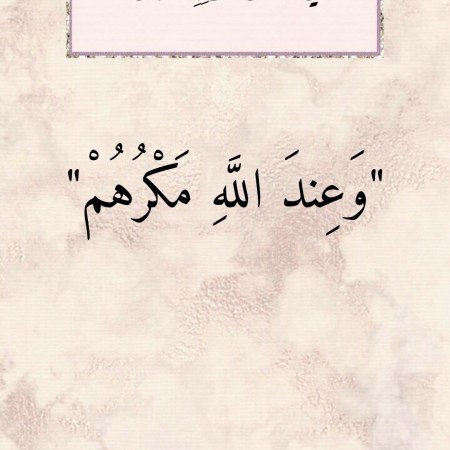 "وَعِندَ اللَّهِ مَكْرُهُمْ"